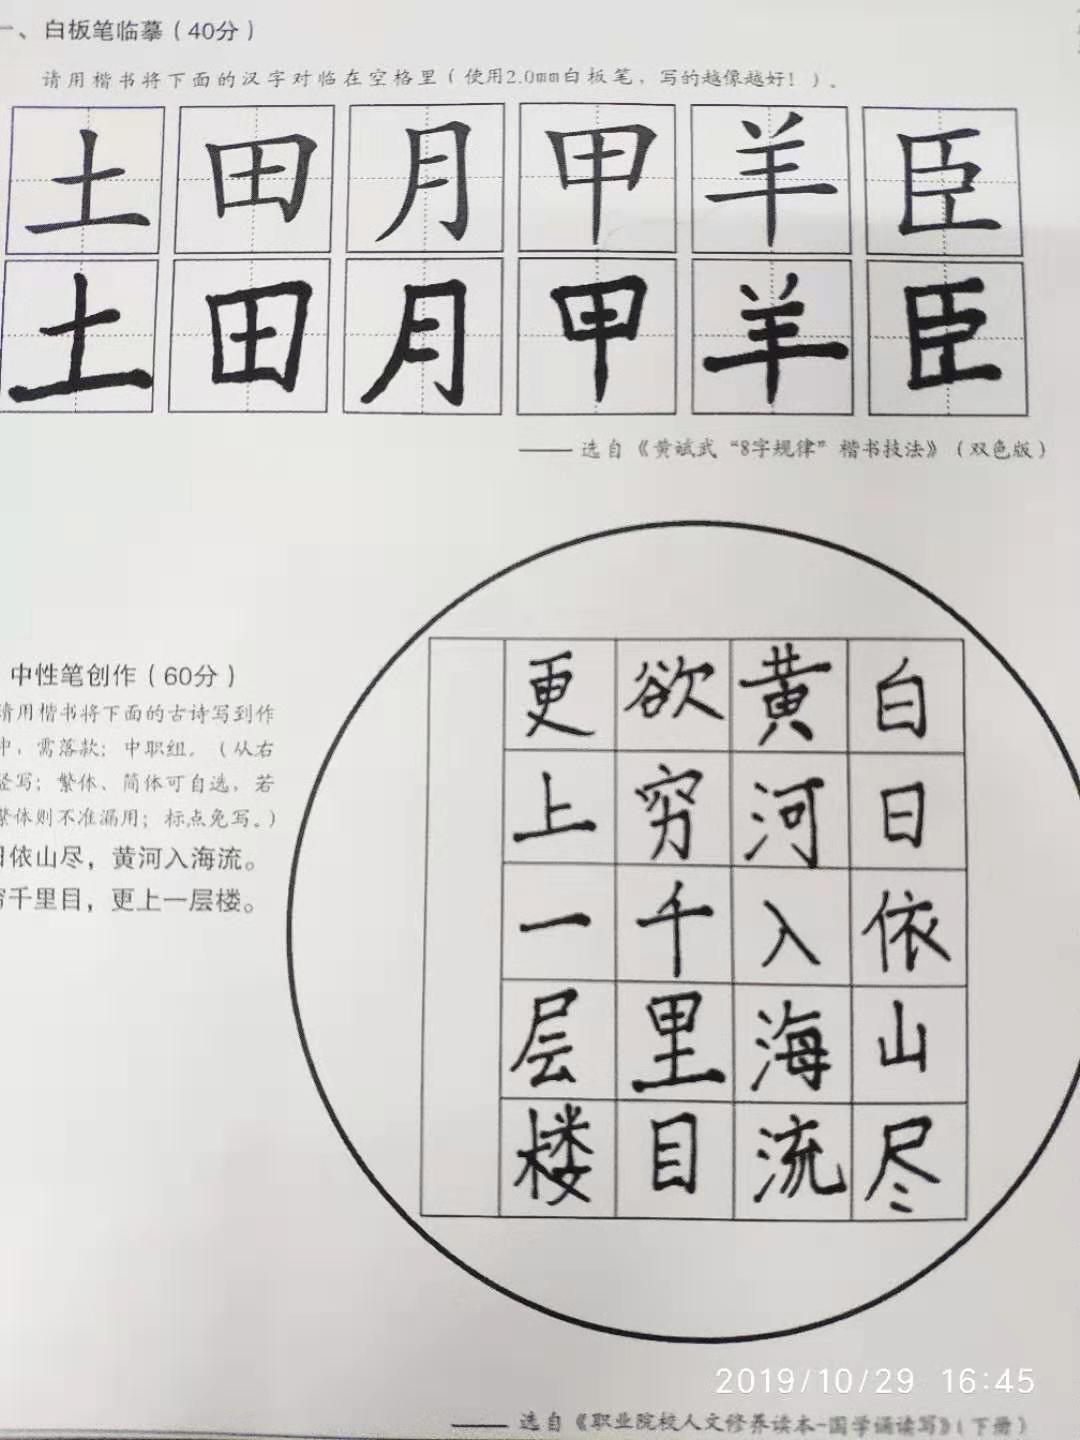 一、白板笔临摹（40分）
请用楷书将下面的汉字对临在空格里（使用2.0mm白板笔，写的越像越好！）。
土 田 月 甲 羊 臣
土 田 月 甲 羊 臣
—— 选自《黄斌武“8字规律”楷书技法》（双色版）
中性笔创作（60分）
请用楷书将下面的古诗写到作
中，需落款；中职组。（从右
竖写；繁体、简体可自选，若
繁体则不准漏用；标点免写。）
日依山尽，黄河入海流。
穷千里目，更上一层楼。
白日依山尽
黄河入海流
欲穷千里目
更上一层楼
2019/10/29 16:45
—— 选自《职业院校人文修养读本-国学诵读写》（下册）